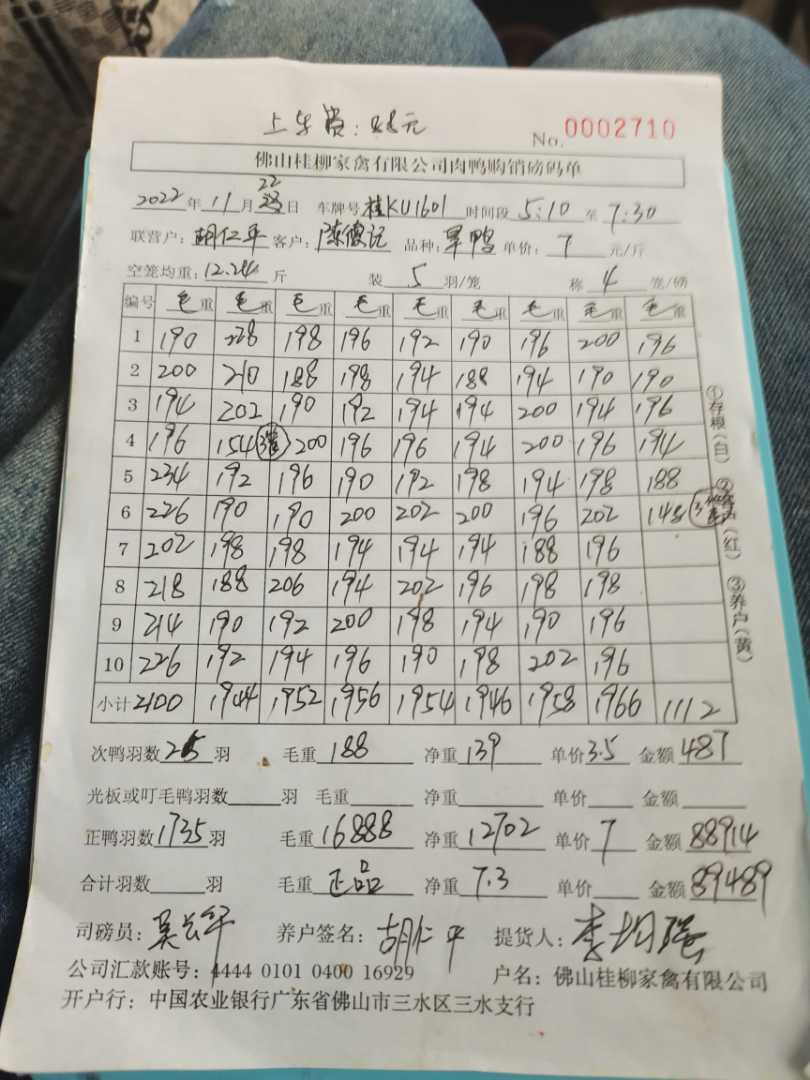 上车费：88元
No. 0002710
佛山桂柳家禽有限公司肉鸭购销磅码单
2022年11月22日 车牌号桂KU1601 时间段5:10至7:30
联营户：胡仁平 客户：陈德记 品种：旱鸭 单价：7元/斤
空笼均重：12.24斤 装5羽/笼 称4笼/磅
编号 毛重 毛重 毛重 毛重 毛重 毛重 毛重 毛重 毛重
1 190 228 198 196 192 190 196 200 196
2 200 210 188 198 194 188 194 190 190
3 194 202 190 192 194 194 200 194 196
4 196 154 200 196 196 194 200 196 194
5 234 192 196 190 192 198 194 198 188
6 226 190 190 200 202 200 196 202 148
7 202 198 198 194 194 194 188 196
8 218 188 206 194 202 196 198 198
9 214 190 192 200 198 194 190 196
10 226 192 194 196 190 198 202 196
小计 2100 1944 1952 1956 1954 1946 1958 1966 1112
①存根（白）②（红）③养户（黄）
次鸭羽数25羽 毛重188 净重139 单价3.5 金额487
光板或叮毛鸭羽数 羽 毛重 净重 单价 金额
正鸭羽数1735羽 毛重16888 净重12702 单价7 金额88914
合计羽数 羽 毛重正品 净重7.3 单价 金额89489
司磅员： 养户签名：胡仁平 提货人：李均强
公司汇款账号：4444 0101 0400 16929 户名：佛山桂柳家禽有限公司
开户行：中国农业银行广东省佛山市三水区三水支行